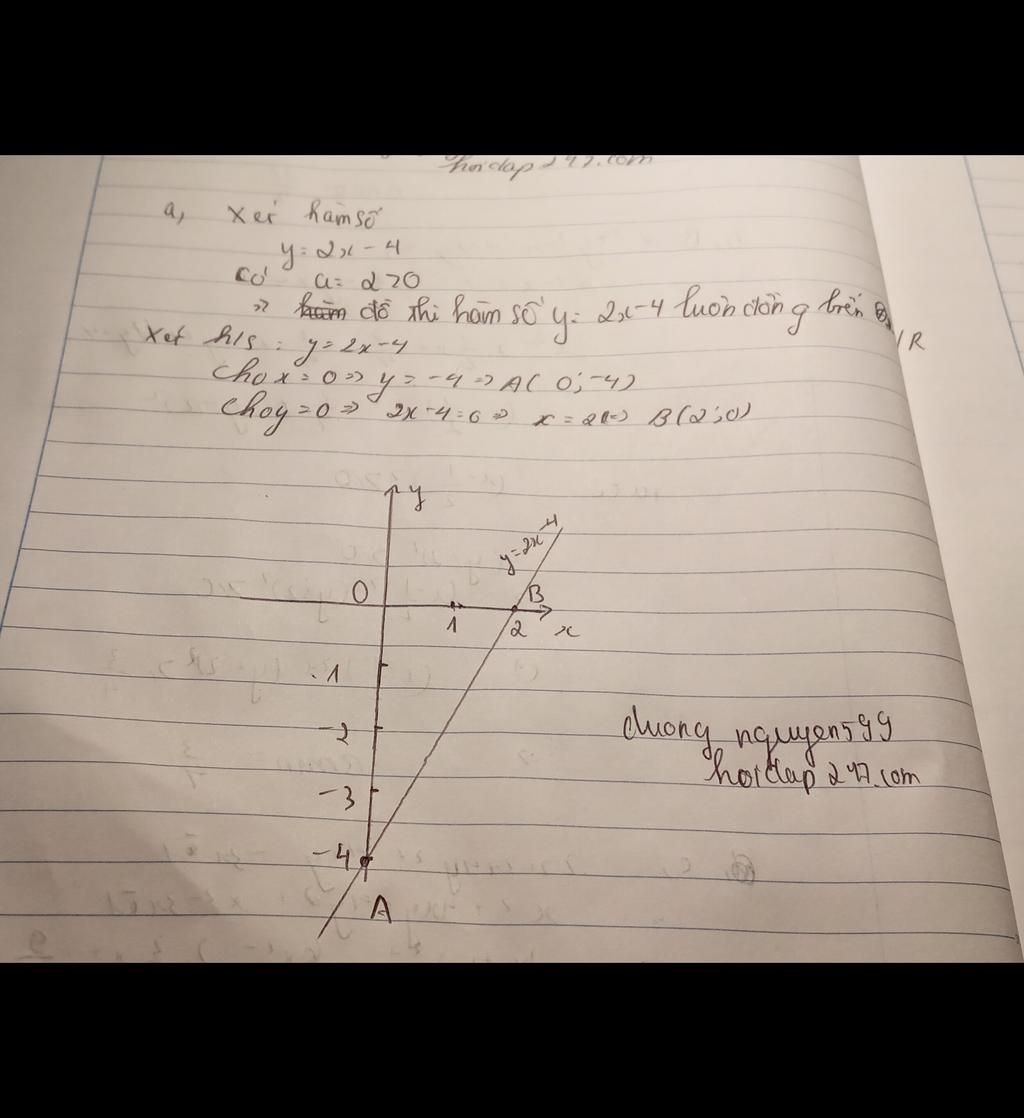 hoidap 247.com
a, Xét hàm số
y = 2x - 4
Có a = 2 > 0
=> đồ thị hàm số y = 2x - 4 luôn đồng biến /R
Xét h/s : y = 2x - 4
Cho x = 0 => y = -4 => A( 0; -4)
Cho y = 0 => 2x - 4 = 0 => x = 2 => B(2; 0)
y
y = 2x - 4
O
B
1
2
x
. 1
-2
-3
-4
A
duong nguyen599
hoidap 247.com